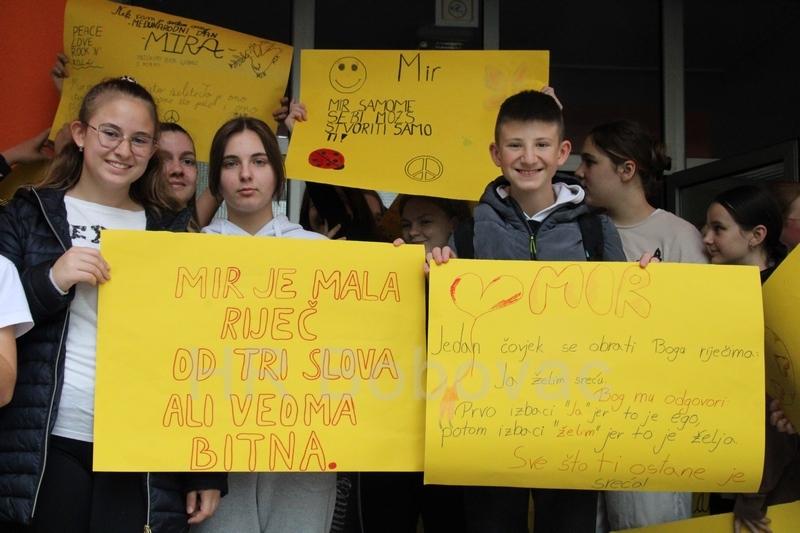 PEACE
LOVE
ROCK N'
ROLL
MEĐUNARODNI DAN
-MIRA-
Mir
MIR SAMOME
SEBI MOŽŠ
STVORITI SAMO
TI!
MIR JE MALA
RIJEČ
OD TRI SLOVA
ALI VEOMA
BITNA.
MIR
Jedan čovjek se obrati Bogu riječima:
Ja želim sreću.
Bog mu odgovori:
Prvo izbaci "Ja" jer to je ego,
potom izbaci "želim" jer to je želja.
Sve što ti ostane je
sreća!
HR Bobovac